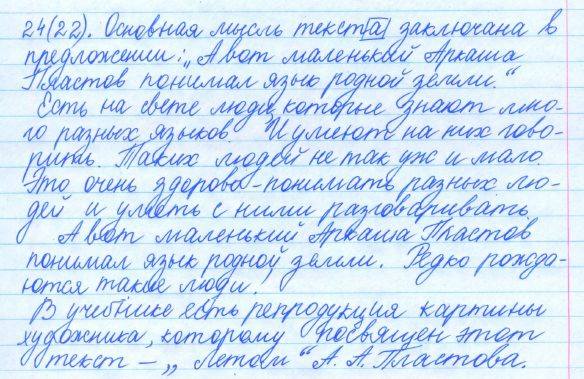 24(22). Основная мысль текста заключена в
предложении: „А вот маленький Аркаша
Пластов понимал язык родной земли.“
Есть на свете люди, которые знают мно-
го разных языков. И умеют на них гово-
рить. Таких людей не так уж и мало.
Это очень здорово - понимать разных лю-
дей и уметь с ними разговаривать.
А вот маленький Аркаша Пластов
понимал язык родной земли. Редко рожда-
ются такие люди!
В учебнике есть репродукция картины
художника, которому посвящен этот
текст - „Летом“ А. А. Пластова.